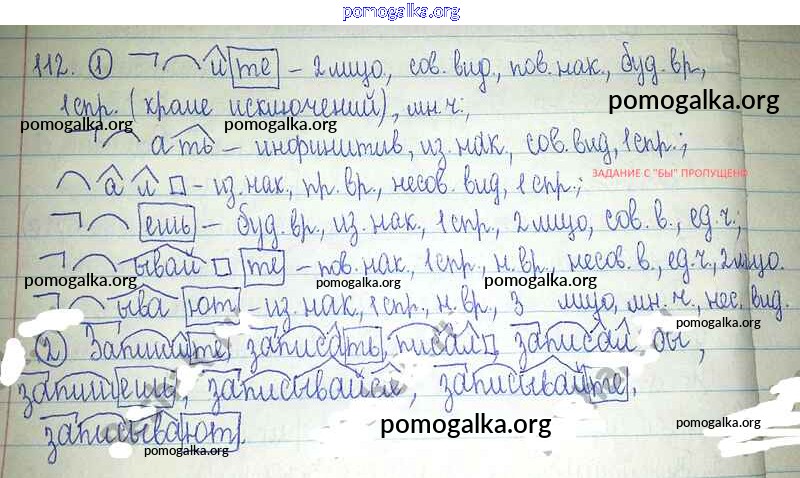 pomogalka.org
112. 1 ите – 2 лицо, сов. вид, пов. нак., буд. вр.,
1 спр. (кроме исключений), мн.ч;
pomogalka.org
pomogalka.org pomogalka.org
ать – инфинитив, из. нак., сов. вид, 1 спр.;
ЗАДАНИЕ С "БЫ" ПРОПУЩЕНО
ал – из. нак., пр. вр., несов. вид, 1 спр.;
ешь – буд. вр., из. нак., 1 спр., 2 лицо, сов. в., ед. ч.;
ывай те – пов. нак., 1 спр., н. вр., несов. в., ед. ч., 2 лицо.
pomogalka.org pomogalka.org pomogalka.org
ыва ют – из. нак., 1 спр., н. вр., 3 лицо, мн. ч., нес. вид.
pomogalka.org
2 Запишите, записать, писал, записал бы,
запишешь, записывайся, записывайте,
pomogalka.org pomogalka.org
записывают.
pomogalka.org